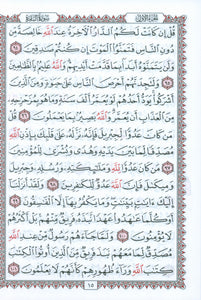 الجزء الأول
سورة البقرة
قُلْ إِن كَانَتْ لَكُمُ الدَّارُ الْآخِرَةُ عِندَ اللَّهِ خَالِصَةً مِّن
دُونِ النَّاسِ فَتَمَنَّوُا الْمَوْتَ إِن كُنتُمْ صَادِقِينَ ٩٤
وَلَن يَتَمَنَّوْهُ أَبَدًا بِمَا قَدَّمَتْ أَيْدِيهِمْ وَاللَّهُ عَلِيمٌ بِالظَّالِمِينَ
٩٥ وَلَتَجِدَنَّهُمْ أَحْرَصَ النَّاسِ عَلَىٰ حَيَاةٍ وَمِنَ الَّذِينَ
أَشْرَكُوا يَوَدُّ أَحَدُهُمْ لَوْ يُعَمَّرُ أَلْفَ سَنَةٍ وَمَا هُوَ بِمُزَحْزِحِهِ
مِنَ الْعَذَابِ أَن يُعَمَّرَ وَاللَّهُ بَصِيرٌ بِمَا يَعْمَلُونَ ٩٦ قُلْ
مَن كَانَ عَدُوًّا لِّجِبْرِيلَ فَإِنَّهُ نَزَّلَهُ عَلَىٰ قَلْبِكَ بِإِذْنِ اللَّهِ
مُصَدِّقًا لِّمَا بَيْنَ يَدَيْهِ وَهُدًى وَبُشْرَىٰ لِلْمُؤْمِنِينَ ٩٧
مَن كَانَ عَدُوًّا لِّلَّهِ وَمَلَائِكَتِهِ وَرُسُلِهِ وَجِبْرِيلَ
وَمِيكَالَ فَإِنَّ اللَّهَ عَدُوٌّ لِّلْكَافِرِينَ ٩٨ وَلَقَدْ أَنزَلْنَا
إِلَيْكَ آيَاتٍ بَيِّنَاتٍ وَمَا يَكْفُرُ بِهَا إِلَّا الْفَاسِقُونَ ٩٩
أَوَكُلَّمَا عَاهَدُوا عَهْدًا نَّبَذَهُ فَرِيقٌ مِّنْهُم بَلْ أَكْثَرُهُمْ
لَا يُؤْمِنُونَ ١٠٠ وَلَمَّا جَاءَهُمْ رَسُولٌ مِّنْ عِندِ اللَّهِ
مُصَدِّقٌ لِّمَا مَعَهُمْ نَبَذَ فَرِيقٌ مِّنَ الَّذِينَ أُوتُوا الْكِتَابَ
كِتَابَ اللَّهِ وَرَاءَ ظُهُورِهِمْ كَأَنَّهُمْ لَا يَعْلَمُونَ ١٠١
١٥